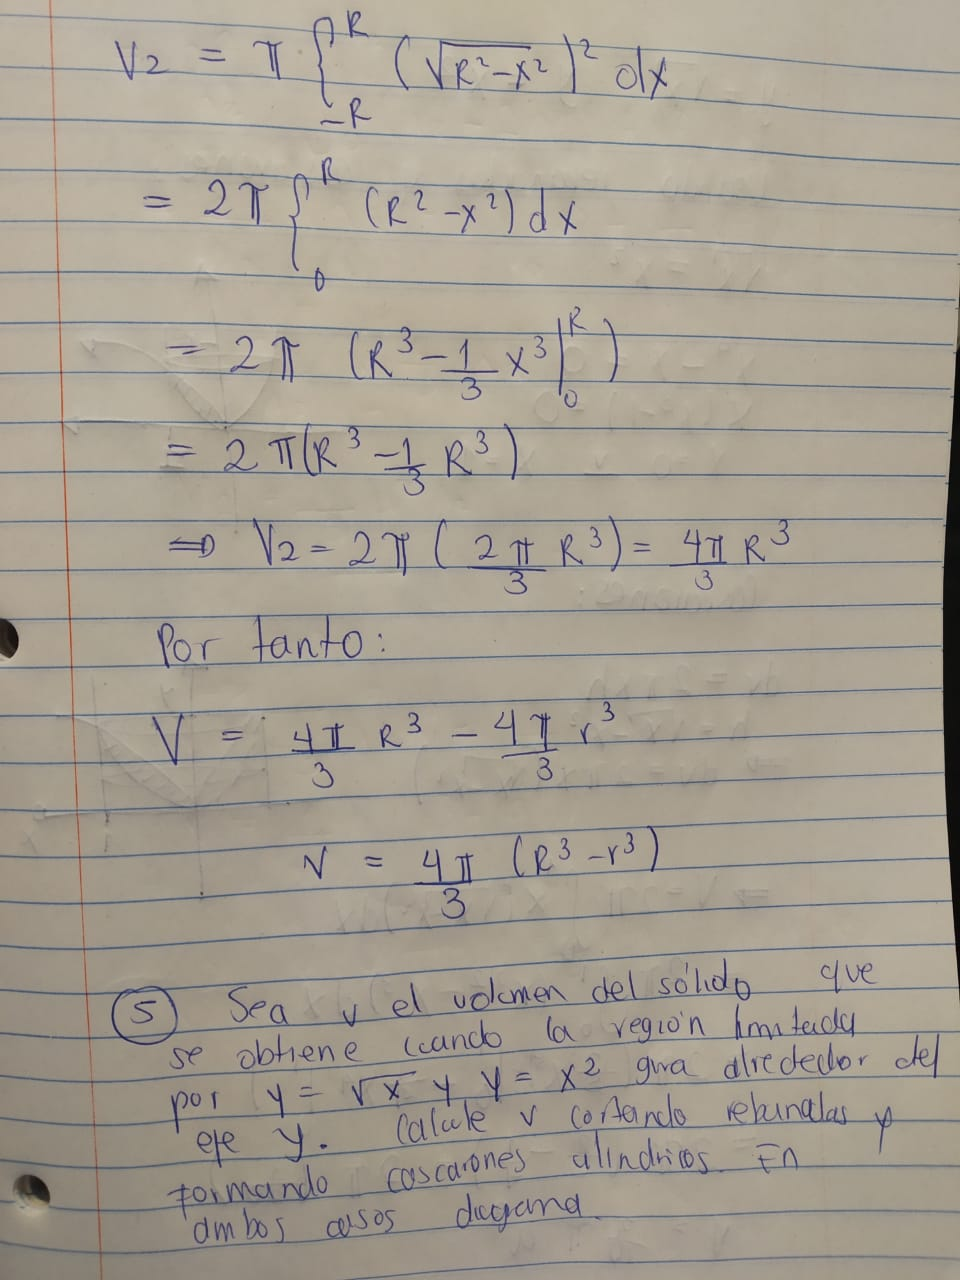 V2 = π ∫_{-R}^{R} (√(R²-x²))² dx
= 2π ∫_0^R (R² -x²) dx
= 2π (R³ - 1/3 x³ |_0^R)
= 2π(R³ - 1/3 R³)
⇒ V2 = 2π ( 2π/3 R³) = 4π/3 R³
Por tanto:
V = 4π/3 R³ - 4π/3 r³
V = 4π/3 (R³ -r³)
(5) Sea v el volumen del sólido que
se obtiene cuando la región limitada
por y = √x y y = x² gira alrededor del
eje y. Calcule v cortando rebanadas y
formando cascarones cilíndricos. En
ambos casos diagrama.